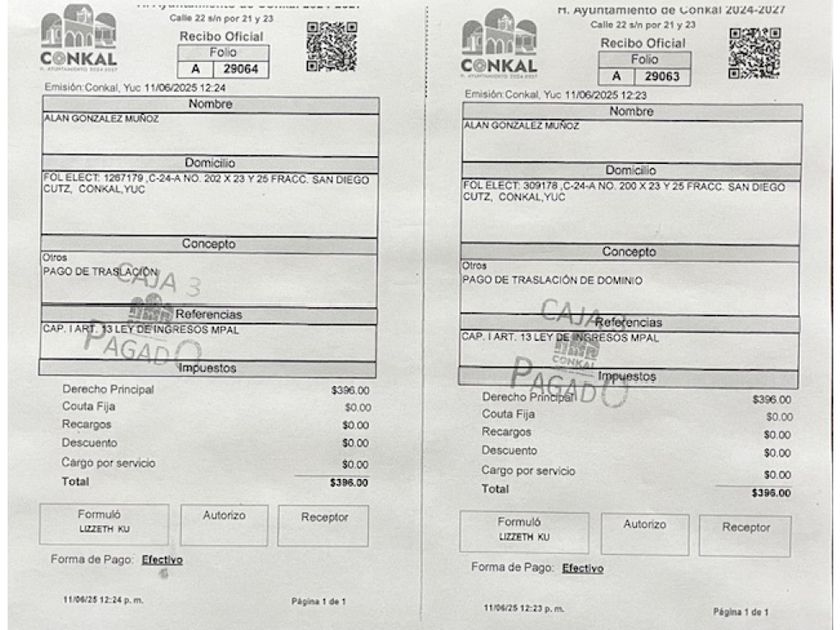 CONKAL
H. AYUNTAMIENTO 2024-2027
Calle 22 s/n por 21 y 23
Recibo Oficial
Folio
A 29064
Emisión:Conkal, Yuc 11/06/2025 12:24
Nombre
ALAN GONZALEZ MUÑOZ
Domicilio
FOL ELECT: 1267179 ,C-24-A NO. 202 X 23 Y 25 FRACC. SAN DIEGO
CUTZ, CONKAL,YUC
Concepto
Otros
PAGO DE TRASLACIÓN
CAJA 3
Referencias
CAP. I ART. 13 LEY DE INGRESOS MPAL
PAGADO
Impuestos
Derecho Principal $396.00
Couta Fija $0.00
Recargos $0.00
Descuento $0.00
Cargo por servicio $0.00
Total $396.00
Formuló
LIZZETH KU
Autorizo
Receptor
Forma de Pago: Efectivo
11/06/25 12:24 p. m.
Página 1 de 1
H. Ayuntamiento de Conkal 2024-2027
CONKAL
H. AYUNTAMIENTO 2024-2027
Calle 22 s/n por 21 y 23
Recibo Oficial
Folio
A 29063
Emisión:Conkal, Yuc 11/06/2025 12:23
Nombre
ALAN GONZALEZ MUÑOZ
Domicilio
FOL ELECT: 309178 ,C-24-A NO. 200 X 23 Y 25 FRACC. SAN DIEGO
CUTZ, CONKAL,YUC
Concepto
Otros
PAGO DE TRASLACIÓN DE DOMINIO
CAJA
Referencias
CAP. I ART. 13 LEY DE INGRESOS MPAL
CONKAL
PAGADO
Impuestos
Derecho Principal $396.00
Couta Fija $0.00
Recargos $0.00
Descuento $0.00
Cargo por servicio $0.00
Total $396.00
Formuló
LIZZETH KU
Autorizo
Receptor
Forma de Pago: Efectivo
11/06/25 12:23 p. m.
Página 1 de 1